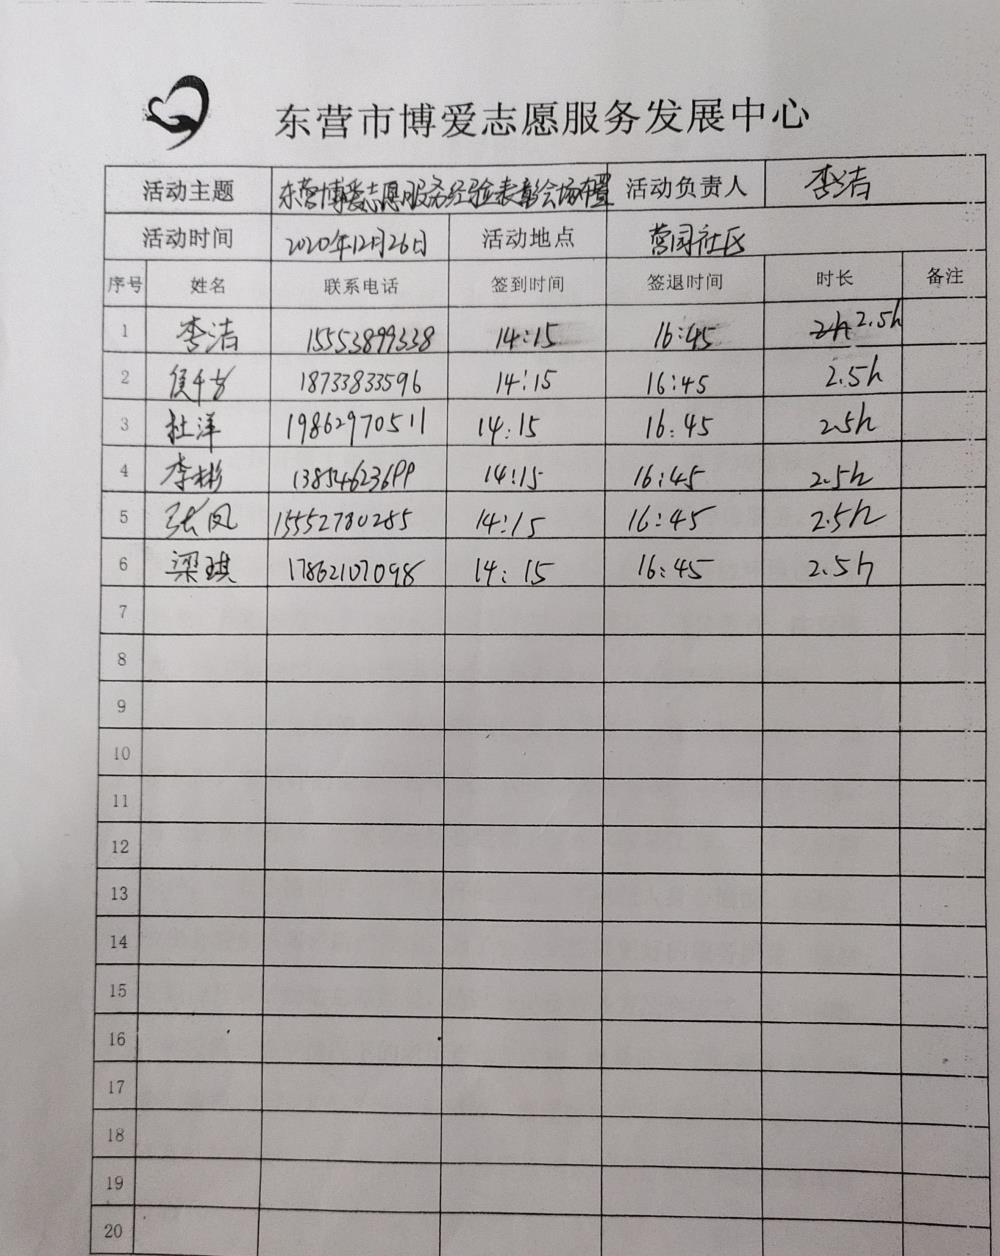 东营市博爱志愿服务发展中心
活动主题 东营博爱志愿服务经验表彰会场布置 活动负责人 李洁
活动时间 2020年12月26日 活动地点 营园社区
序号 姓名 联系电话 签到时间 签退时间 时长 备注
1 李洁 15553899338 14:15 16:45 2.5h
2 18733833596 14:15 16:45 2.5h
3 杜洋 19862970511 14:15 16:45 2.5h
4 李彬 13854623699 14:15 16:45 2.5h
5 张凤 15552780285 14:15 16:45 2.5h
6 梁琪 17862107098 14:15 16:45 2.5h
7
8
9
10
11
12
13
14
15
16
17
18
19
20